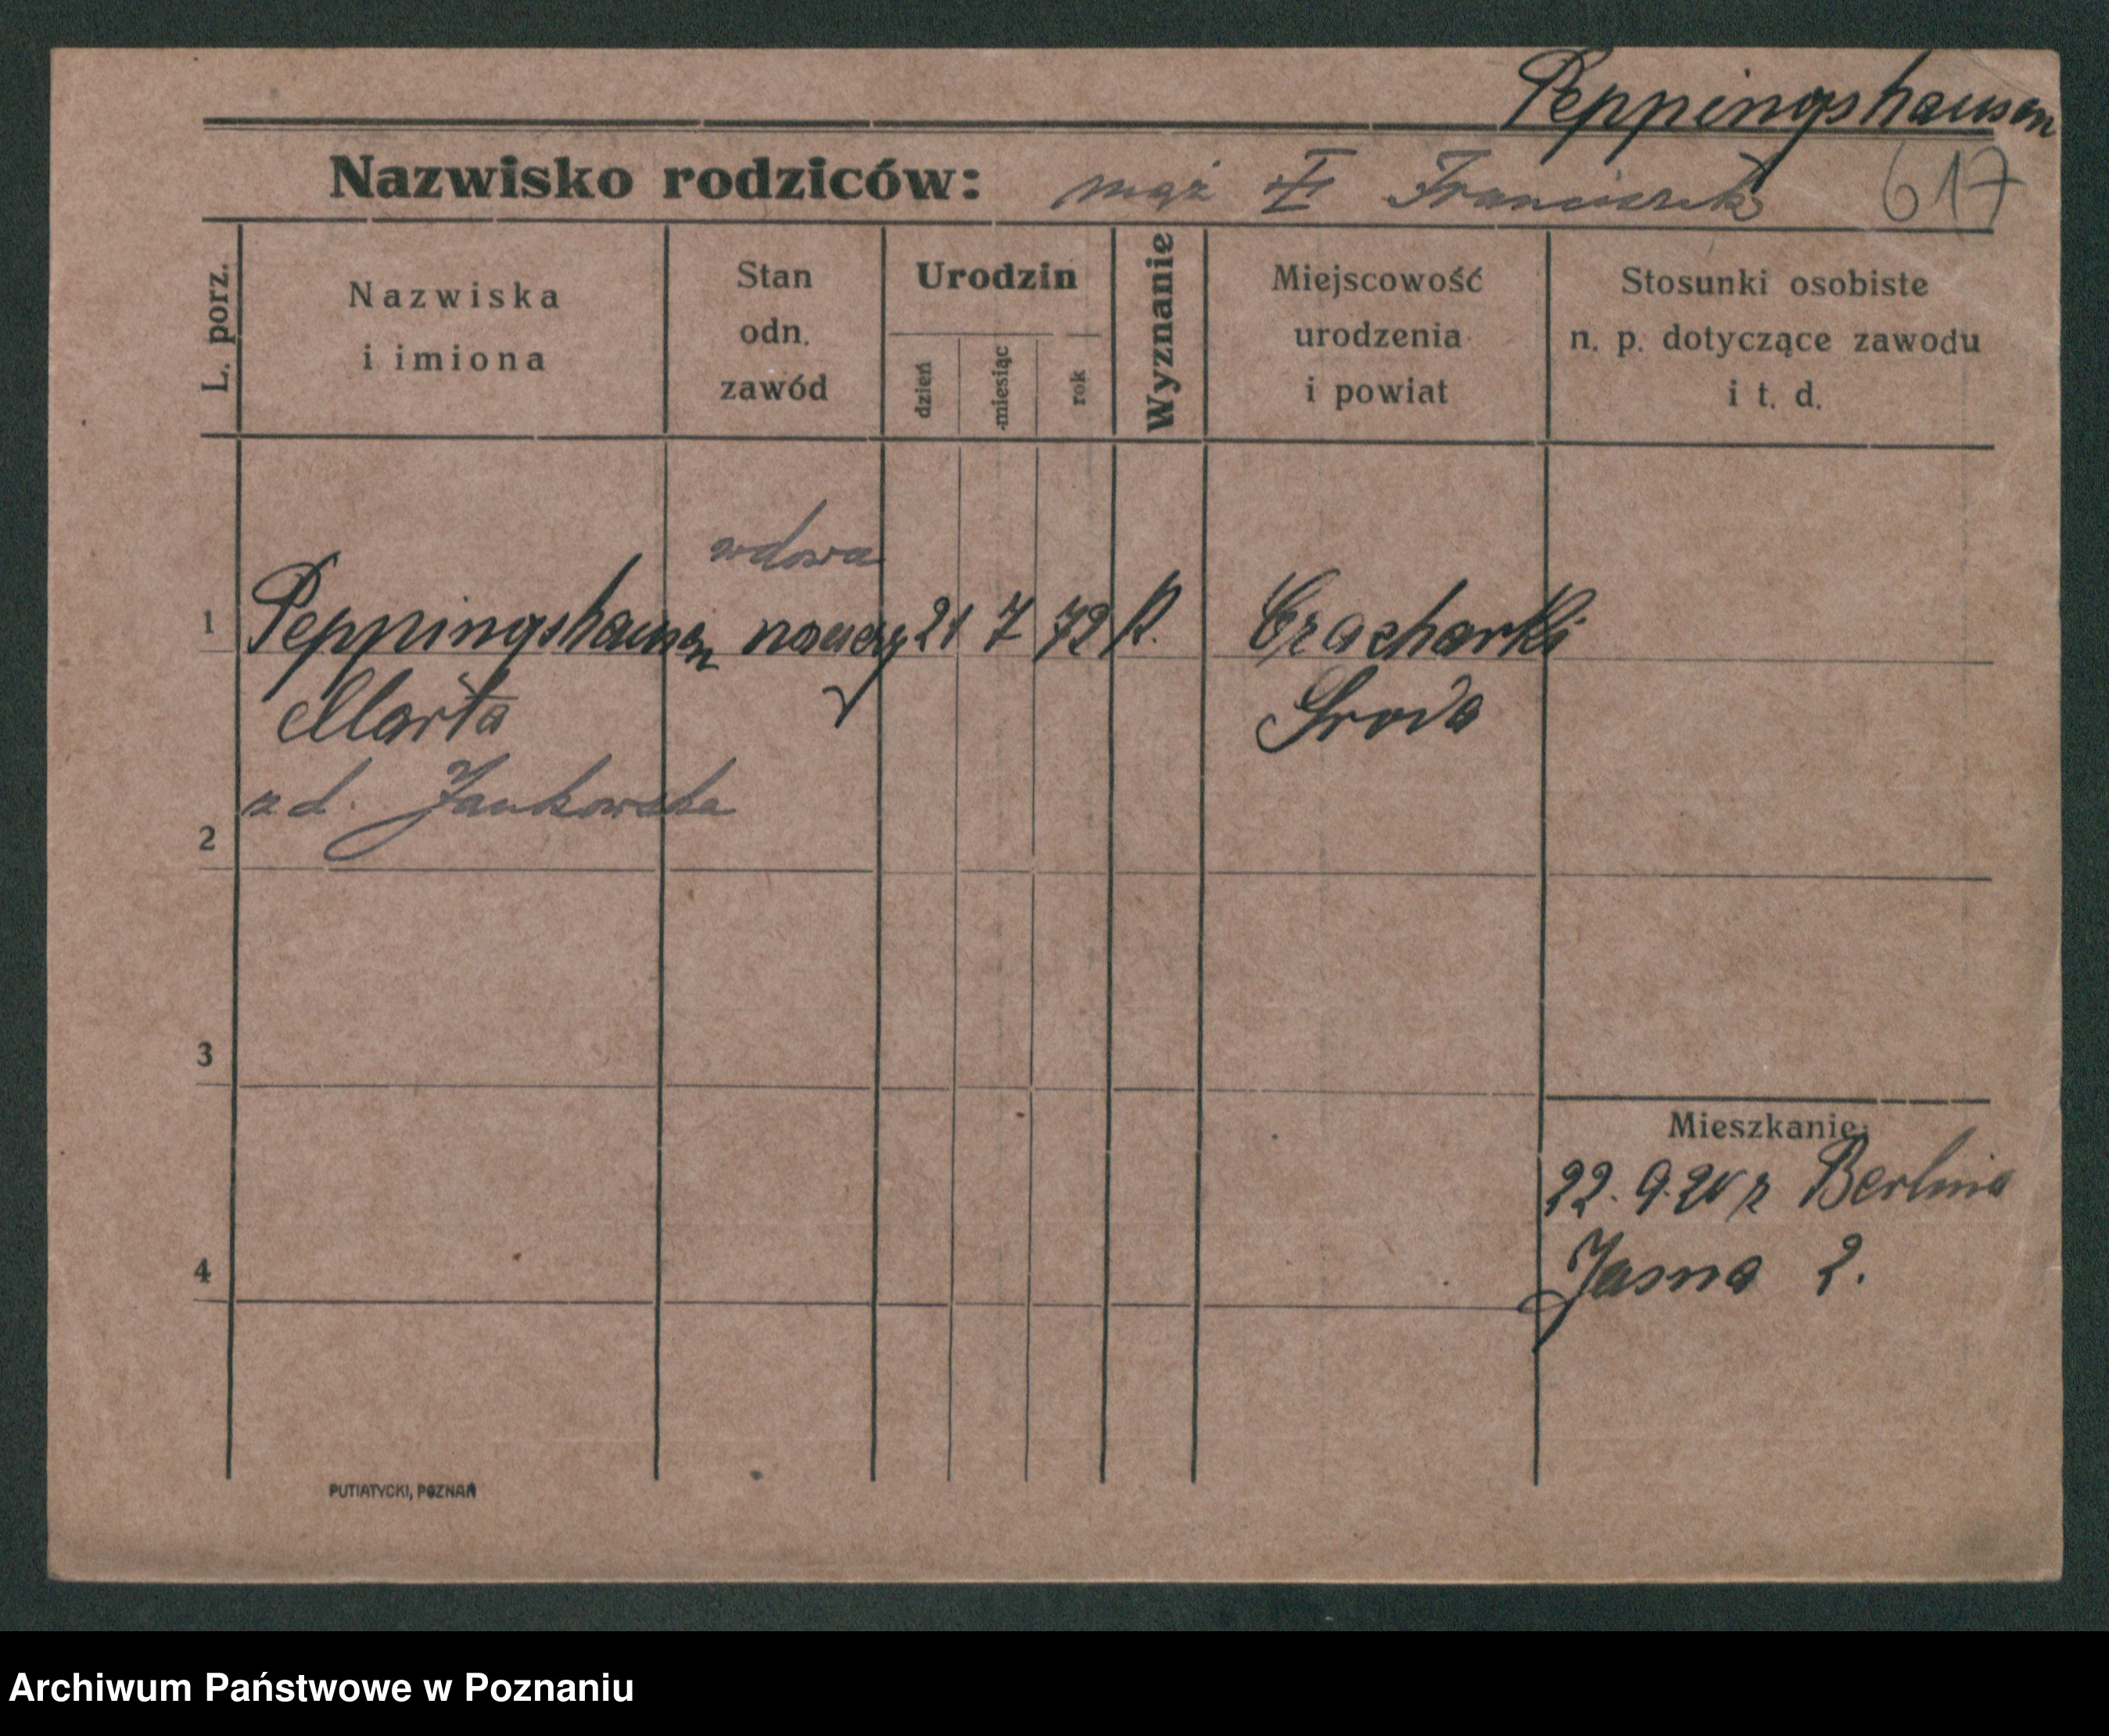 Peppingshausen
Nazwisko rodziców: mąż I Franciszek 617
L. porz.
Nazwiska
i imiona
Stan
odn.
zawód
Urodzin
dzień
miesiąc
rok
Wyznanie
Miejscowość
urodzenia
i powiat
Stosunki osobiste
n. p. dotyczące zawodu
i t. d.
wdowa
1 Peppingshausen 21 7 72 K.
Marta Środa
2 z d. Jankowska
3
Mieszkanie:
22. 9. 20 z Berlina
4 Jasna 2.
PUTIATYCKI, POZNAŃ
Archiwum Państwowe w Poznaniu